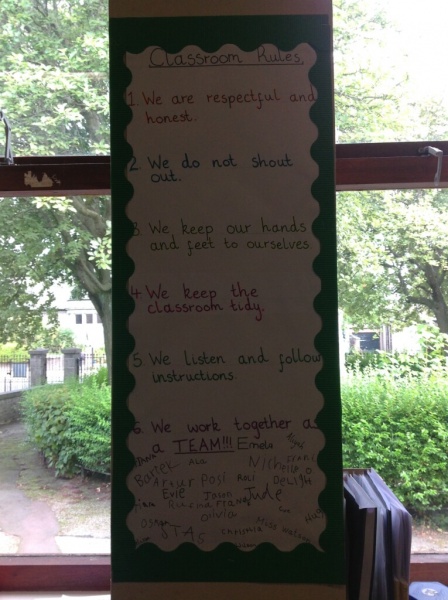 Classroom Rules.
1. We are respectful and
honest.
2. We do not shout
out.
3. We keep our hands
and feet to ourselves.
4. We keep the
classroom tidy.
5. We listen and follow
instructions.
6. We work together as
a TEAM!!! Emela
Ala
Bartek
Arthur Posi
Evie Jason Jude
Olivia
Miss